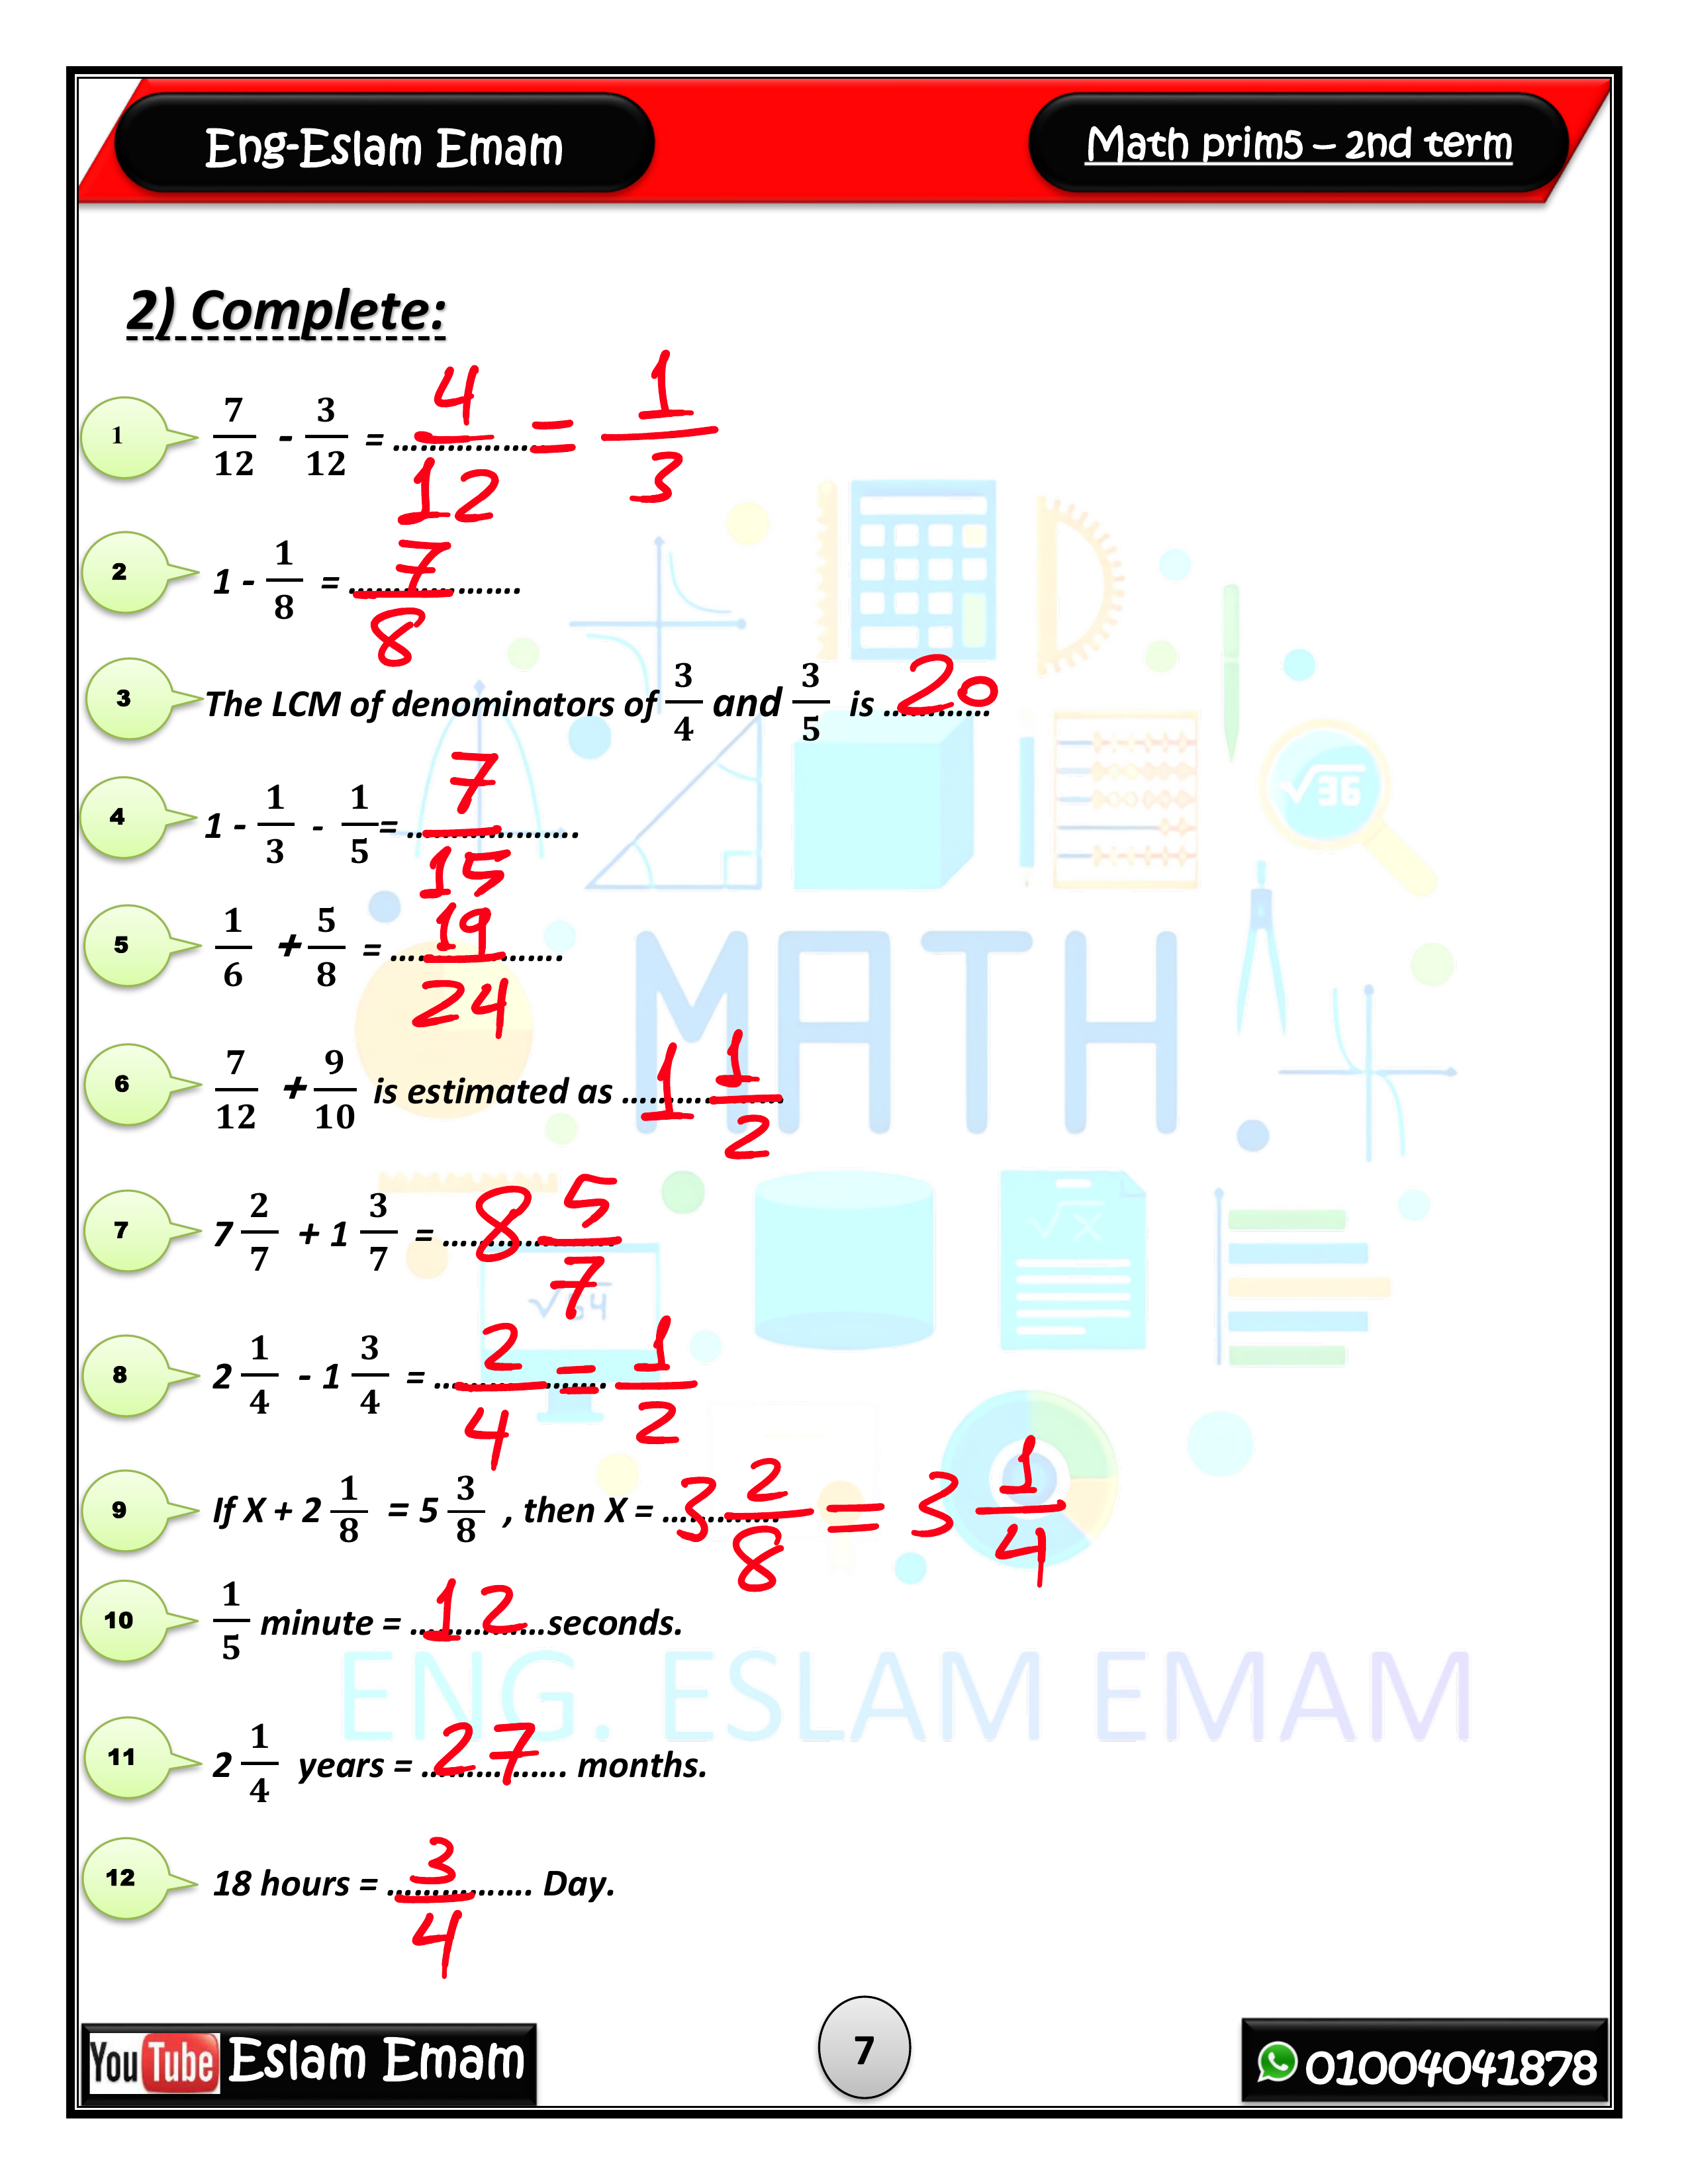 Eng-Eslam Emam
Math prim5 – 2nd term
2) Complete:
1 7/12 - 3/12 = ................... 4/12 = 1/3
2 1 - 1/8 = ................... 7/8
3 The LCM of denominators of 3/4 and 3/5 is ............ 20
4 1 - 1/3 - 1/5 = ................... 7/15
5 1/6 + 5/8 = ................... 19/24
6 7/12 + 9/10 is estimated as .................. 1 1/2
7 7 2/7 + 1 3/7 = ................... 8 5/7
8 2 1/4 - 1 3/4 = ................... 2/4 = 1/2
9 If X + 2 1/8 = 5 3/8 , then X = ............. 3 2/8 = 3 1/4
10 1/5 minute = ............... 12 seconds.
11 2 1/4 years = ................ 27 months.
12 18 hours = ................ 3/4 Day.
MATH
√36
√x
√64
ENG. ESLAM EMAM
YouTube Eslam Emam
7
01004041878